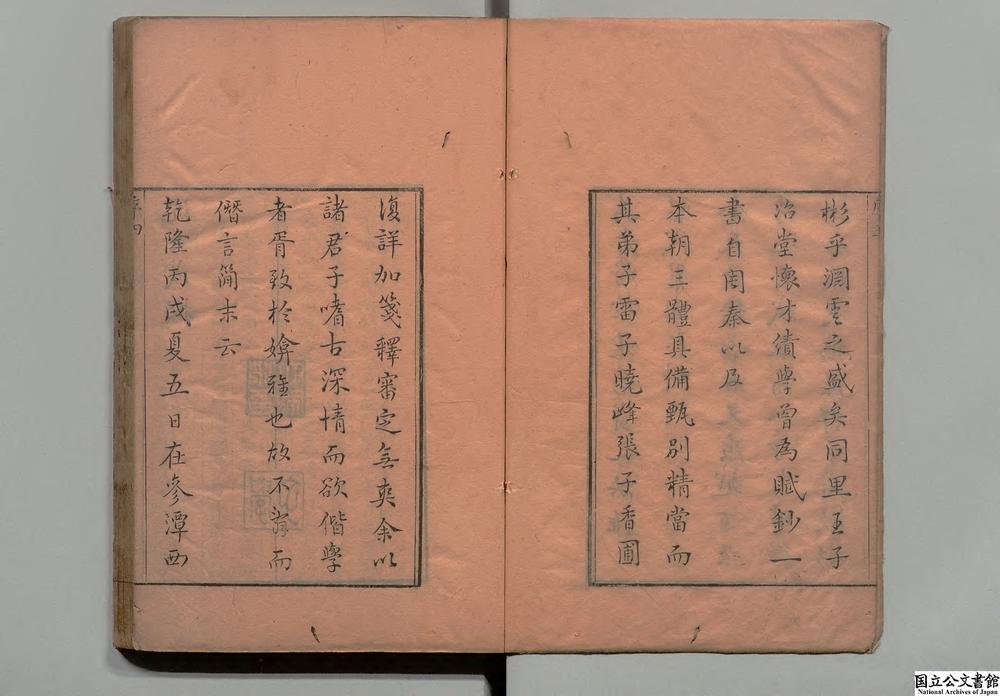 彬乎淵雲之盛矣同里王子
冶堂懷才績學曾為賦鈔一
書自周秦以及
本朝三體具備甄別精當而
其弟子雷子曉峰張子香圃
復詳加箋釋審定無爽余以
諸君子嗜古深情而欲偕學
者胥致於媕雅也故不辭而
僭言簡末云
乾隆丙戌夏五日在參潭西
国立公文書館
National Archives of Japan